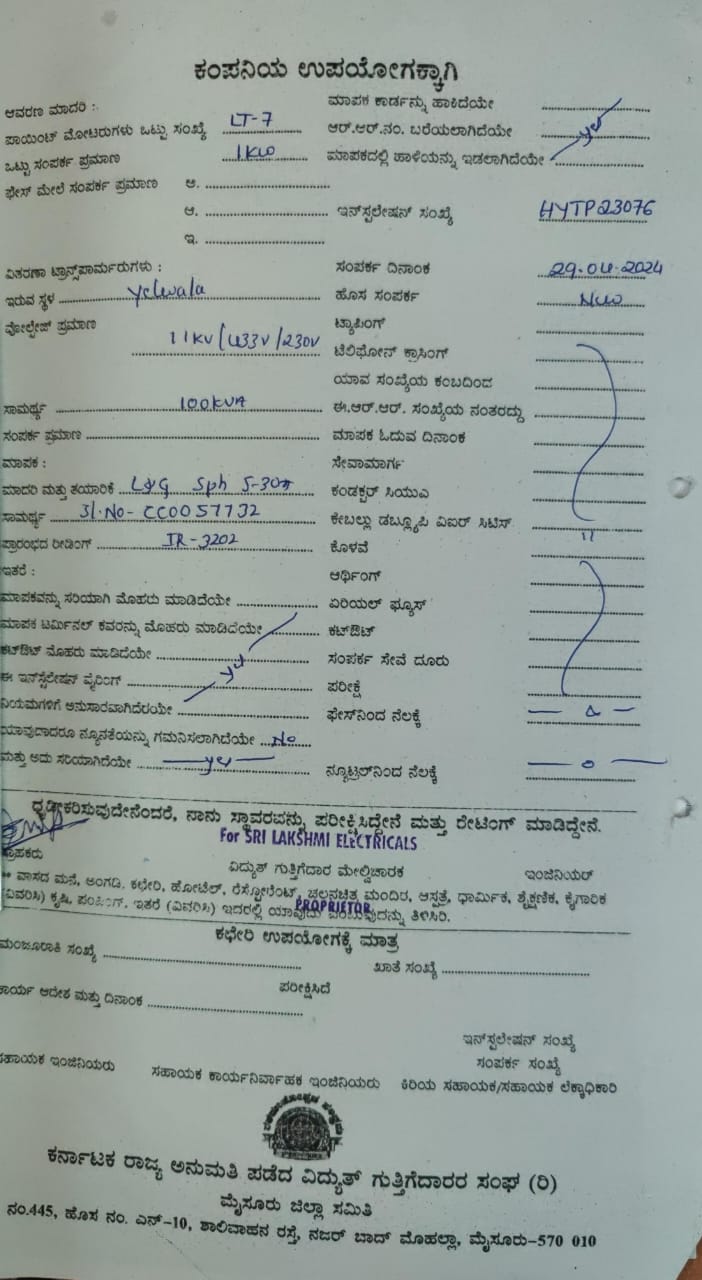 ಕಂಪನಿಯ ಉಪಯೋಗಕ್ಕಾಗಿ
ಆವರಣ ಮಾದರಿ :
ಮಾಪಕ ಕಾರ್ಡನ್ನು ಹಾಕಿದೆಯೇ
ಪಾಯಿಂಟ್ ಮೋಟರುಗಳು ಒಟ್ಟು ಸಂಖ್ಯೆ LT-7
ಆರ್.ಆರ್.ನಂ. ಬರೆಯಲಾಗಿದೆಯೇ yes
ಒಟ್ಟು ಸಂಪರ್ಕ ಪ್ರಮಾಣ 1KW
ಮಾಪಕದಲ್ಲಿ ಹಾಳೆಯನ್ನು ಇಡಲಾಗಿದೆಯೇ
ಫೇಸ್ ಮೇಲೆ ಸಂಪರ್ಕ ಪ್ರಮಾಣ ಅ.
ಆ. ಇನ್‌ಸ್ಟಲೇಷನ್ ಸಂಖ್ಯೆ HYTP23076
ಇ.
ವಿತರಣಾ ಟ್ರಾನ್ಸ್‌ಪಾರ್ಮರುಗಳು :
ಸಂಪರ್ಕ ದಿನಾಂಕ 29-04-2024
ಇರುವ ಸ್ಥಳ Yelwala
ಹೊಸ ಸಂಪರ್ಕ New
ವೋಲ್ಟೇಜ್ ಪ್ರಮಾಣ 11KV/433V/230V
ಟ್ಯಾಪಿಂಗ್
ಟೆಲಿಫೋನ್ ಕ್ರಾಸಿಂಗ್
ಯಾವ ಸಂಖ್ಯೆಯ ಕಂಬದಿಂದ
ಸಾಮರ್ಥ್ಯ 100KVA
ಈ.ಆರ್.ಆರ್. ಸಂಖ್ಯೆಯ ನಂತರದ್ದು
ಸಂಪರ್ಕ ಪ್ರಮಾಣ
ಮಾಪಕ ಓದುವ ದಿನಾಂಕ
ಮಾಪಕ :
ಸೇವಾಮಾರ್ಗ
ಮಾದರಿ ಮತ್ತು ತಯಾರಿಕೆ L&G Sph 5-30A
ಕಂಡಕ್ಟರ್ ಸಿಯುಎ
ಸಾಮರ್ಥ್ಯ Sl.No- CC0057732
ಕೇಬಲ್ಲು ಡಬ್ಲ್ಯೂಪಿ ವಿಐರ್ ಸಿಟಿಸ್
ಪ್ರಾರಂಭದ ರೀಡಿಂಗ್ IR-3202
ಕೊಳವೆ "
ಇತರೆ :
ಆರ್ಥಿಂಗ್
ಮಾಪಕವನ್ನು ಸರಿಯಾಗಿ ಮೊಹರು ಮಾಡಿದೆಯೇ
ಏರಿಯಲ್ ಫ್ಯೂಸ್
ಮಾಪಕ ಟರ್ಮಿನಲ್ ಕವರನ್ನು ಮೊಹರು ಮಾಡಿದೆಯೇ
ಕಟ್‌ಔಟ್
ಕಟ್‌ಔಟ್ ಮೊಹರು ಮಾಡಿದೆಯೇ yes
ಸಂಪರ್ಕ ಸೇವೆ ದೂರು
ಈ ಇನ್‌ಸ್ಟಲೇಷನ್ ವೈರಿಂಗ್
ಪರೀಕ್ಷೆ
ನಿಯಮಗಳಿಗೆ ಅನುಸಾರವಾಗಿದೆರಯೇ
ಫೇಸ್‌ನಿಂದ ನೆಲಕ್ಕೆ
ಯಾವುದಾದರೂ ನ್ಯೂನತೆಯನ್ನು ಗಮನಿಸಲಾಗಿದೆಯೇ No
ಮತ್ತು ಅದು ಸರಿಯಾಗಿದೆಯೇ yes
ನ್ಯೂಟ್ರಲ್‌ನಿಂದ ನೆಲಕ್ಕೆ
ಧೃಡೀಕರಿಸುವುದೇನೆಂದರೆ, ನಾನು ಸ್ಥಾವರವನ್ನು ಪರೀಕ್ಷಿಸಿದ್ದೇನೆ ಮತ್ತು ರೇಟಿಂಗ್ ಮಾಡಿದ್ದೇನೆ.
For SRI LAKSHMI ELECTRICALS
ಗ್ರಾಹಕರು ವಿದ್ಯುತ್ ಗುತ್ತಿಗೆದಾರ ಮೇಲ್ವಿಚಾರಕ ಇಂಜಿನಿಯರ್
** ವಾಸದ ಮನೆ, ಅಂಗಡಿ. ಕಛೇರಿ, ಹೋಟೆಲ್, ರೆಸ್ಟೋರೆಂಟ್, ಚಲನಚಿತ್ರ ಮಂದಿರ, ಆಸ್ಪತ್ರೆ, ಧಾರ್ಮಿಕ, ಶೈಕ್ಷಣಿಕ, ಕೈಗಾರಿಕ
(ವಿವರಿಸಿ) ಕೃಷಿ, ಪಂಪಿಂಗ್. ಇತರೆ (ವಿವರಿಸಿ) ಇದರಲ್ಲಿ ಯಾವುದು ಎಂಬುವುದನ್ನು ತಿಳಿಸಿರಿ.
PROPRIETOR
ಕಛೇರಿ ಉಪಯೋಗಕ್ಕೆ ಮಾತ್ರ
ಮಂಜೂರಾತಿ ಸಂಖ್ಯೆ ಖಾತೆ ಸಂಖ್ಯೆ
ಪರೀಕ್ಷಿಸಿದೆ
ಕಾರ್ಯ ಆದೇಶ ಮತ್ತು ದಿನಾಂಕ
ಇನ್‌ಸ್ಟಲೇಷನ್ ಸಂಖ್ಯೆ
ಸಂಪರ್ಕ ಸಂಖ್ಯೆ
ಸಹಾಯಕ ಇಂಜಿನಿಯರು ಸಹಾಯಕ ಕಾರ್ಯನಿರ್ವಾಹಕ ಇಂಜಿನಿಯರು ಕಿರಿಯ ಸಹಾಯಕ/ಸಹಾಯಕ ಲೆಕ್ಕಾಧಿಕಾರಿ
ಕರ್ನಾಟಕ ರಾಜ್ಯ ಅನುಮತಿ ಪಡೆದ ವಿದ್ಯುತ್ ಗುತ್ತಿಗೆದಾರರ ಸಂಘ (ರಿ)
ಮೈಸೂರು ಜಿಲ್ಲಾ ಸಮಿತಿ
ನಂ.445, ಹೊಸ ನಂ. ಎನ್-10, ಶಾಲಿವಾಹನ ರಸ್ತೆ, ನಜರ್ ಬಾದ್ ಮೊಹಲ್ಲಾ, ಮೈಸೂರು-570 010